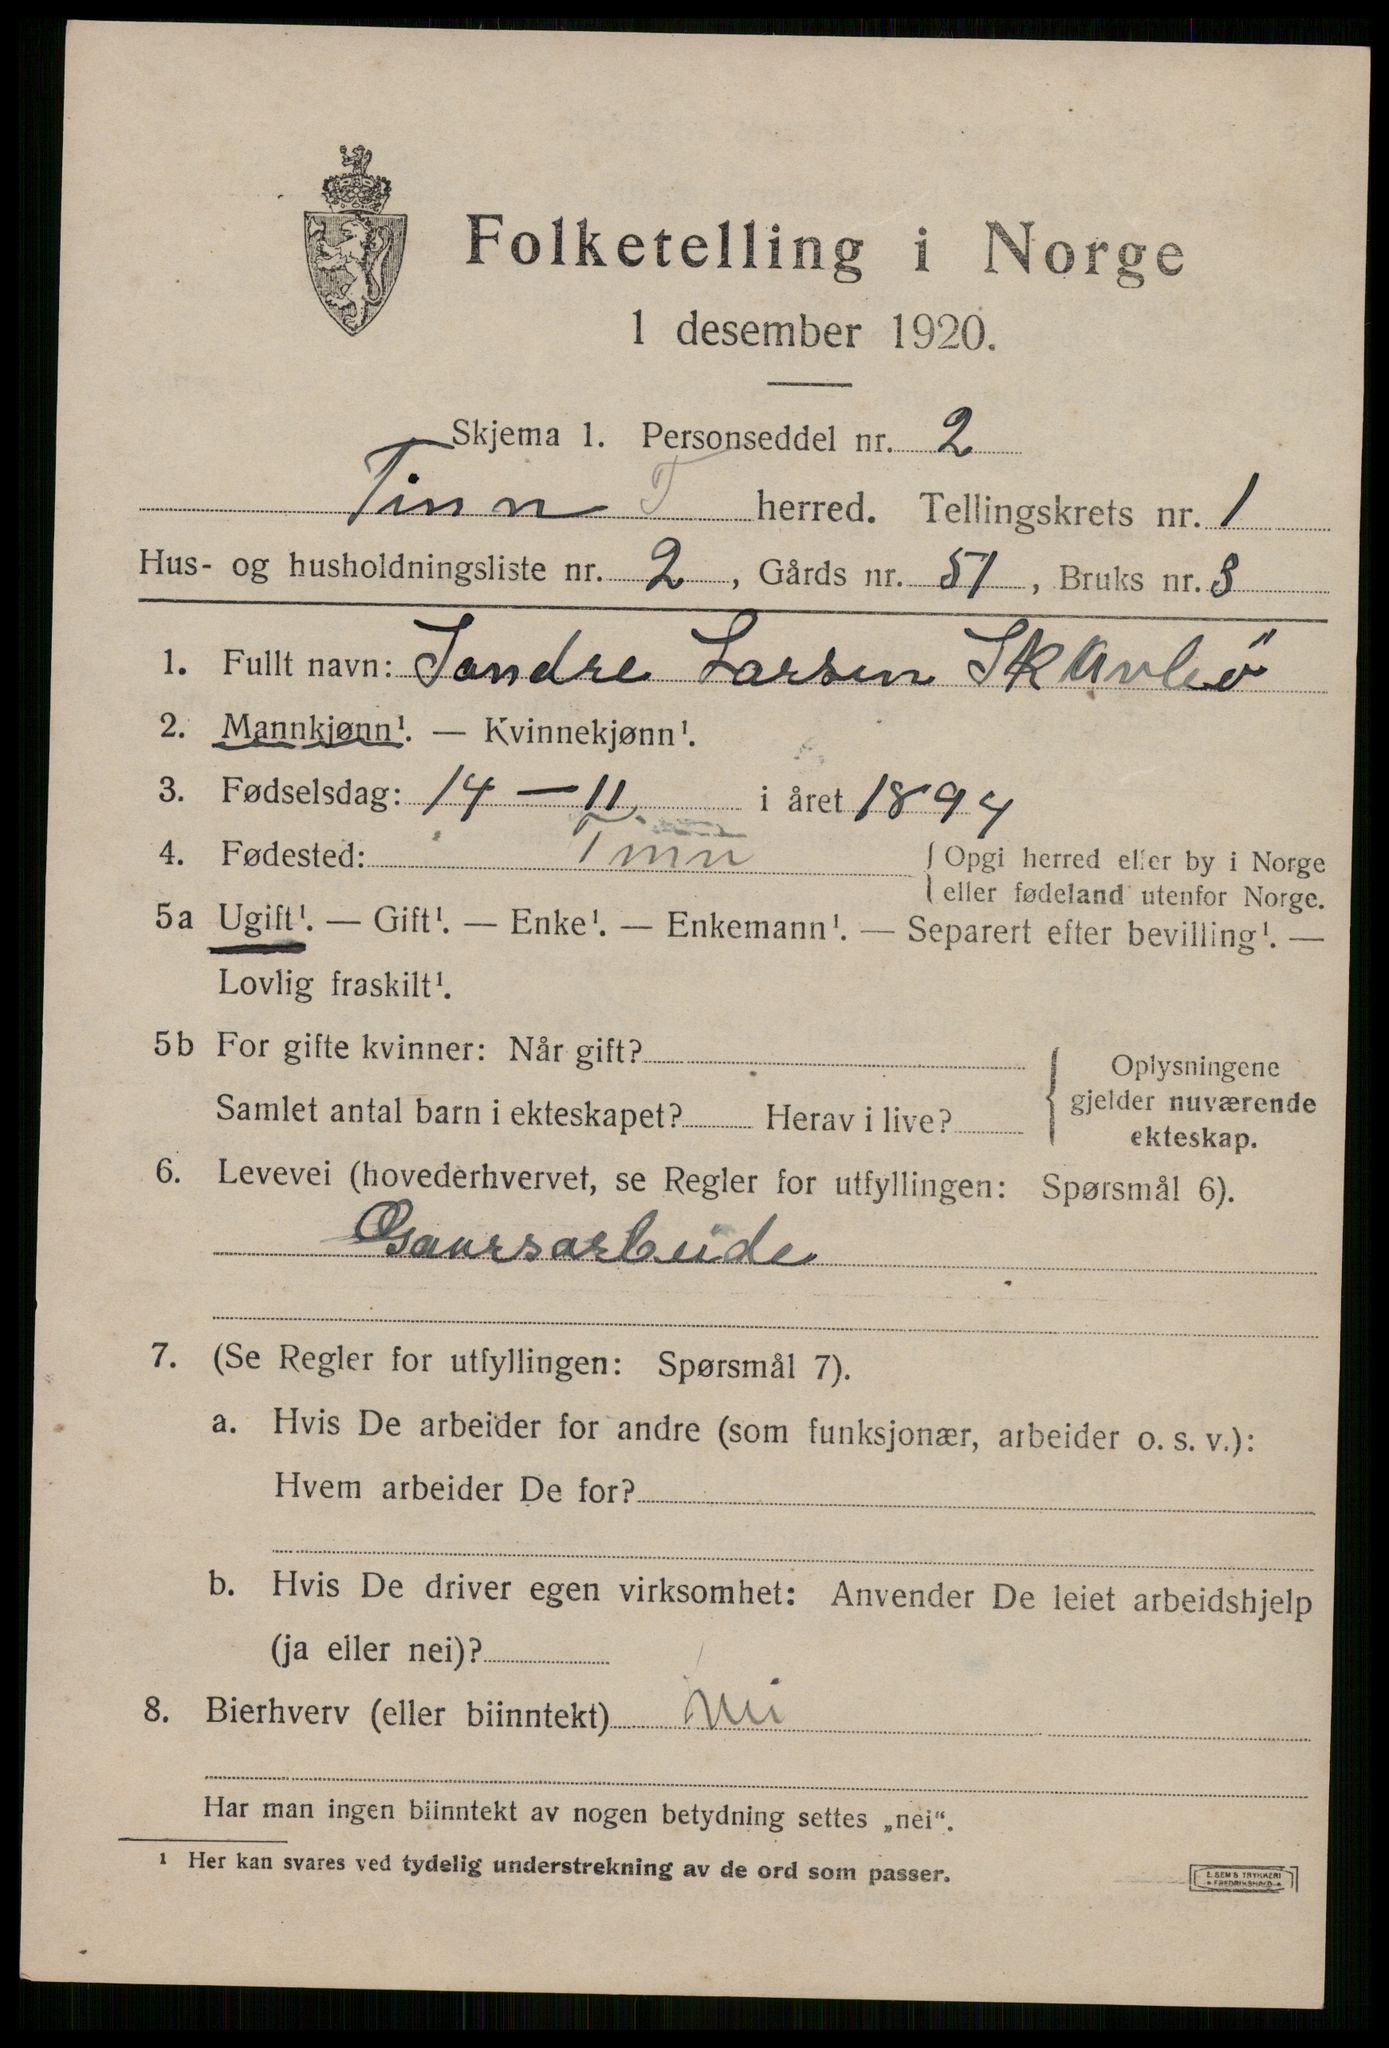 Folketelling i Norge
1 desember 1920.
Skjema 1. Personseddel nr. 2
Tinn T herred. Tellingskrets nr. 1
Hus- og husholdningsliste nr. 2, Gårds nr. 51, Bruks nr. 3
1. Fullt navn: Sondre Larsen Skavlebø
2. Mannkjønn¹. — Kvinnekjønn¹.
3. Fødselsdag: 14 — 11. i året 1894
4. Fødested: Tinn
{ Opgi herred eller by i Norge
eller fødeland utenfor Norge.
5a Ugift¹. — Gift¹. — Enke¹. — Enkemann¹. — Separert efter bevilling¹. —
Lovlig fraskilt¹.
5b For gifte kvinner: Når gift?
Samlet antal barn i ekteskapet? Herav i live?
{ Oplysningene
gjelder nuværende
ekteskap.
6. Levevei (hovederhvervet, se Regler for utfyllingen: Spørsmål 6).
Gaarsarbeide
7. (Se Regler for utfyllingen: Spørsmål 7).
a. Hvis De arbeider for andre (som funksjonær, arbeider o. s. v.):
Hvem arbeider De for?
b. Hvis De driver egen virksomhet: Anvender De leiet arbeidshjelp
(ja eller nei)?
8. Bierhverv (eller biinntekt) Nei
Har man ingen biinntekt av nogen betydning settes „nei“.
¹ Her kan svares ved tydelig understrekning av de ord som passer.
E. SEM'S TRYKKERI
FREDRIKSHALD